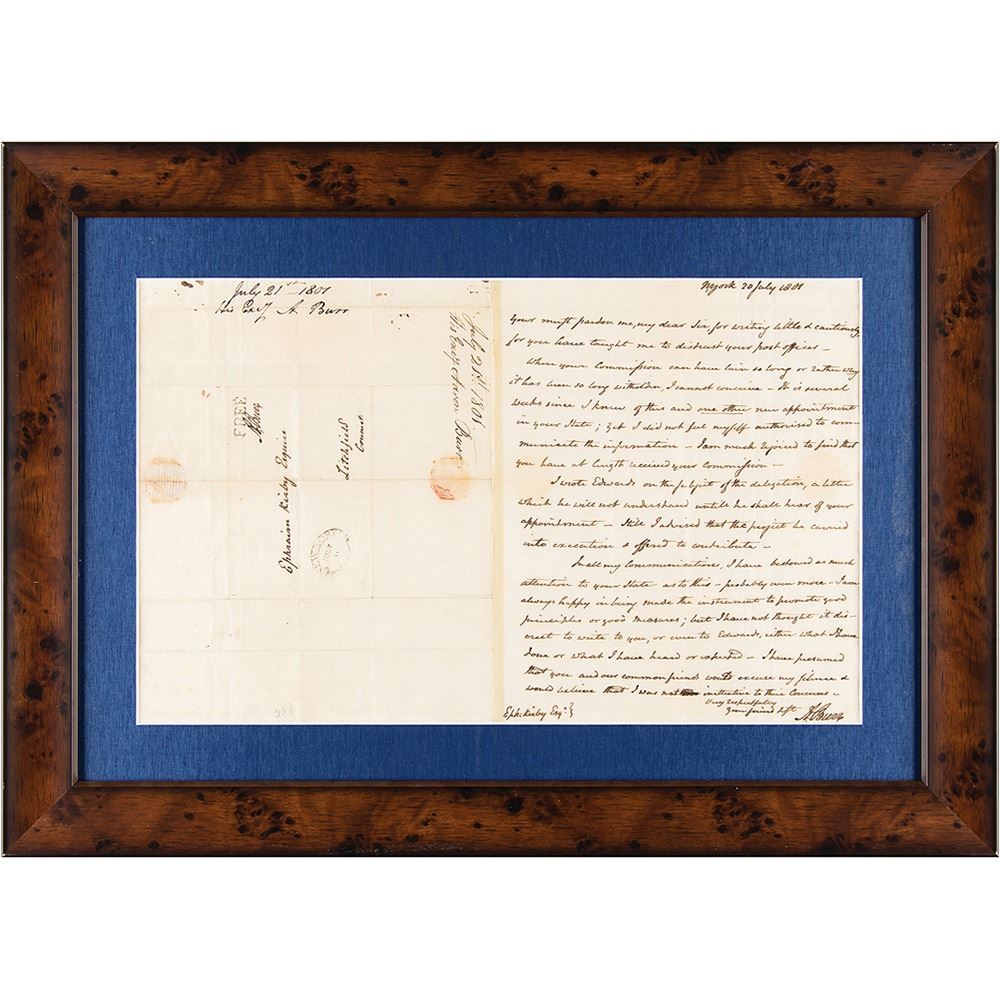 July 21st 1801
His Excy A. Burr
July 21st 1801
His Excy Aaron Burr
FREE
A Burr
Ephraim Kirby Esquire
Litchfield
Connect
NYork 20 July 1801
Your must pardon me, my dear Sir, for writing little & cautiously,
for you have taught me to distrust your post offices —
Where your Commission can have lain so long or rather why
it has been so long witholden, I cannot conceive — It is several
weeks since I knew of this and one other new appointment
in your State; yet I did not feel myself authorised to com-
municate the information — I am much rejoiced to find that
you have at length received your Commission —
I wrote Edwards on the subject of the delegation, a letter
which he will not understand untill he shall hear of your
appointment — Still I advised that the project be carried
into execution & offered to contribute —
In all my Communications, I have bestowed as much
attention to your State as to this — probably even more — I am
always happy in being made the instrument to promote good
principles or good measures; but I have not thought it dis-
creet to write to you, or even to Edwards, either what I have
done or what I have heard or expected — I have presumed
that you and our common friends would excuse my silence &
would believe that I was not inattentive to their Concerns —
Very respectfully
Your friend & st
A. Burr
Eph: Kirby Esqr. }